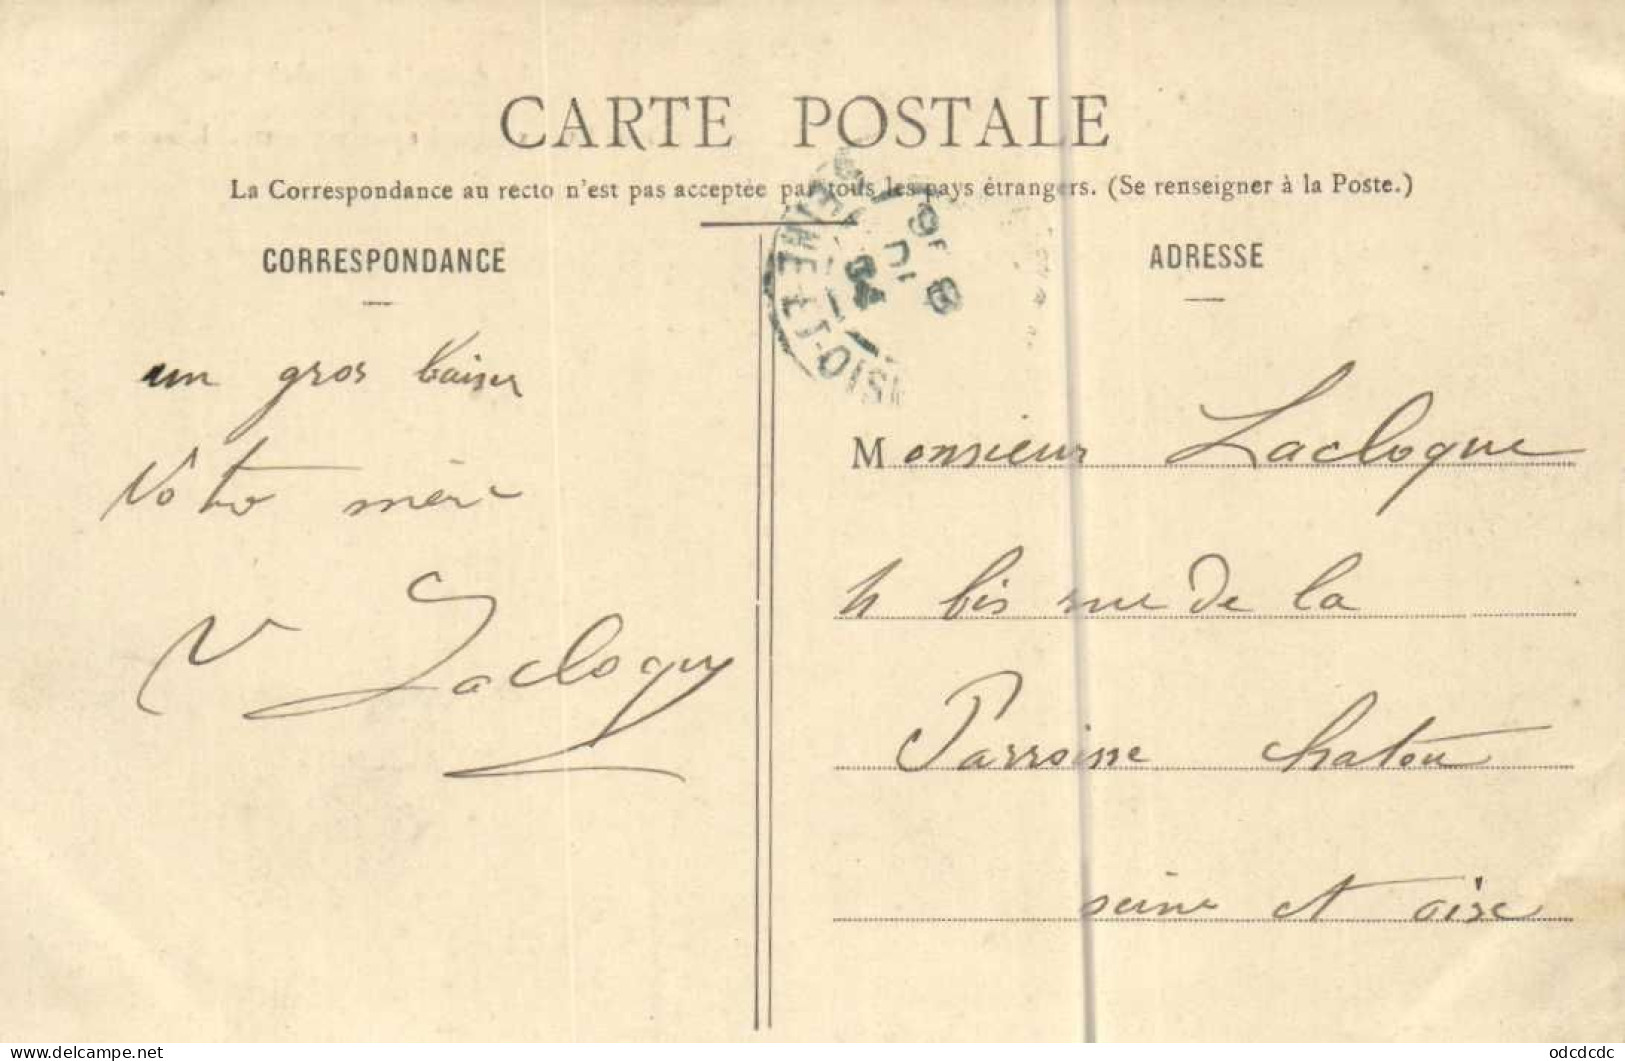 CARTE POSTALE
La Correspondance au recto n'est pas acceptée par tous les pays étrangers. (Se renseigner à la Poste.)
CORRESPONDANCE
un gros baiser
Votre mère
V Laclogue
ADRESSE
Monsieur Laclogue
4 bis rue de la
Parroisse chatou
seine et oise
SEINE-ET-OISE
delcampe.net
odcdcdc